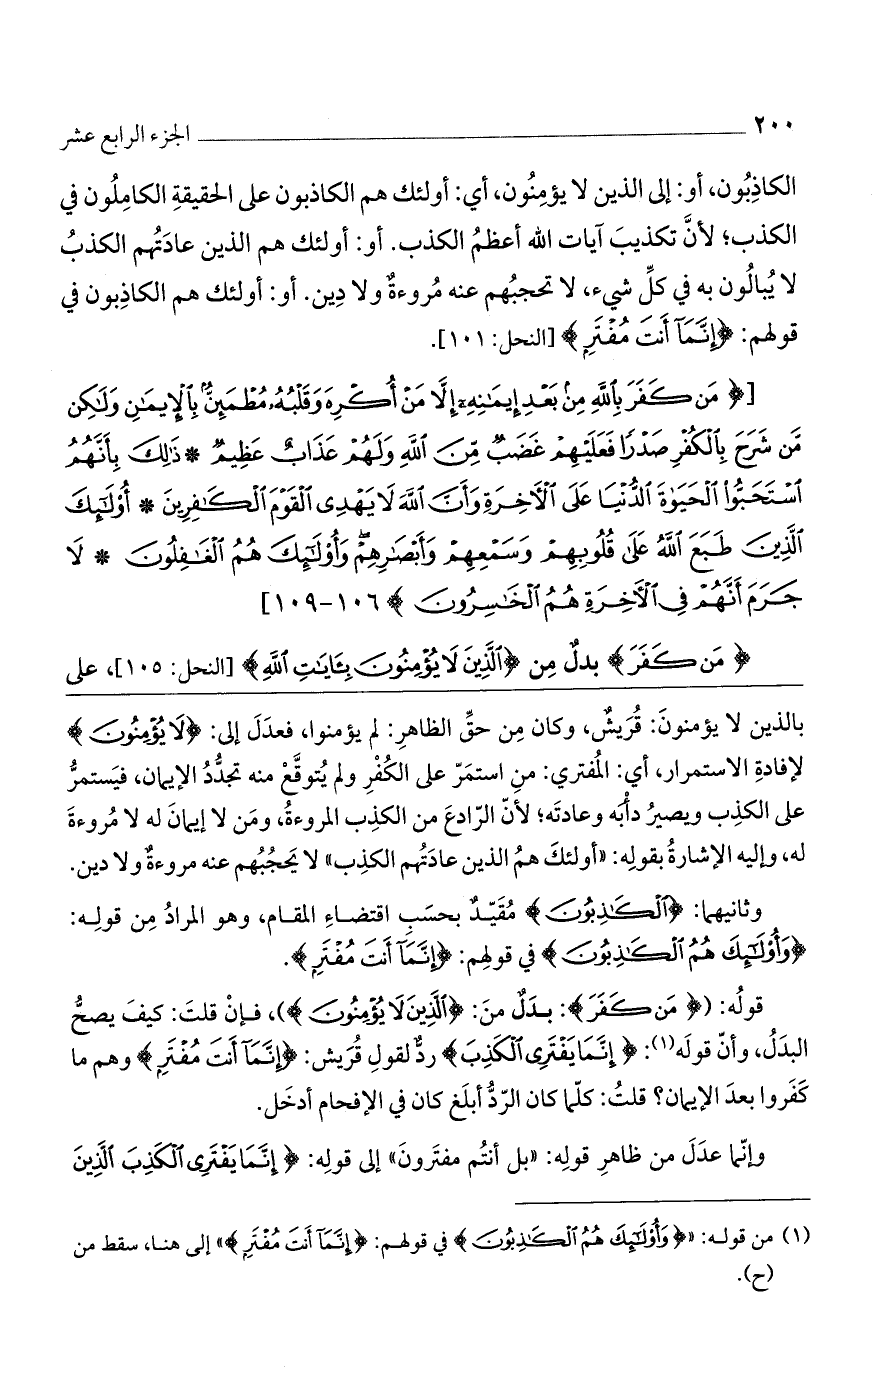 ٢٠٠ الجزء الرابع عشر
الكاذِبُون، أو: إلى الذين لا يؤمِنُون، أي: أولئك هم الكاذبون على الحقيقةِ الكامِلُون في
الكذب؛ لأنَّ تكذيبَ آيات الله أعظمُ الكذب. أو: أولئك هم الذين عادَتُهم الكذبُ
لا يُبالُون به في كلِّ شيء، لا تحجبُهم عنه مُروءةٌ ولا دِين. أو: أولئك هم الكاذِبون في
قولهم: ﴿إِنَّمَآ أَنتَ مُفْتَرٍ﴾ [النحل: ١٠١].
[﴿مَن كَفَرَ بِٱللَّهِ مِنۢ بَعْدِ إِيمَٰنِهِۦٓ إِلَّا مَنْ أُكْرِهَ وَقَلْبُهُۥ مُطْمَئِنٌّۢ بِٱلْإِيمَٰنِ وَلَٰكِن
مَّن شَرَحَ بِٱلْكُفْرِ صَدْرًا فَعَلَيْهِمْ غَضَبٌ مِّنَ ٱللَّهِ وَلَهُمْ عَذَابٌ عَظِيمٌ * ذَٰلِكَ بِأَنَّهُمُ
ٱسْتَحَبُّوا۟ ٱلْحَيَوٰةَ ٱلدُّنْيَا عَلَى ٱلْءَاخِرَةِ وَأَنَّ ٱللَّهَ لَا يَهْدِى ٱلْقَوْمَ ٱلْكَٰفِرِينَ * أُو۟لَٰٓئِكَ
ٱلَّذِينَ طَبَعَ ٱللَّهُ عَلَىٰ قُلُوبِهِمْ وَسَمْعِهِمْ وَأَبْصَٰرِهِمْ ۖ وَأُو۟لَٰٓئِكَ هُمُ ٱلْغَٰفِلُونَ * لَا
جَرَمَ أَنَّهُمْ فِى ٱلْءَاخِرَةِ هُمُ ٱلْخَٰسِرُونَ﴾ ١٠٦-١٠٩]
﴿مَن كَفَرَ﴾ بدلٌ مِن ﴿ٱلَّذِينَ لَا يُؤْمِنُونَ بِـَٔايَٰتِ ٱللَّهِ﴾ [النحل: ١٠٥]، على
بالذين لا يؤمنونَ: قُريشٌ، وكان مِن حقِّ الظاهرِ: لم يؤمنوا، فعدَلَ إلى: ﴿لَا يُؤْمِنُونَ﴾
لإفادةِ الاستمرار، أي: المُفتري: منِ استمَرّ على الكُفْرِ ولم يُتوقَّعْ منه تجدُّدُ الإيمان، فيَستمرُّ
على الكذِب ويصيرُ دأبَه وعادتَه؛ لأنّ الرّادعَ من الكذِب المروءةُ، ومَن لا إيمانَ له لا مُروءةَ
له، وإليه الإشارةُ بقولِه: «أولئكَ همُ الذين عادَتُهم الكذِب» لا يَحجُبُهم عنه مروءةٌ ولا دين.
وثانيهما: ﴿ٱلْكَٰذِبُونَ﴾ مُقَيّدٌ بحسَبِ اقتضاءِ المقام، وهو المرادُ مِن قولِه:
﴿وَأُو۟لَٰٓئِكَ هُمُ ٱلْكَٰذِبُونَ﴾ في قولِهم: ﴿إِنَّمَآ أَنتَ مُفْتَرٍ﴾.
قولُه: (﴿مَن كَفَرَ﴾: بدَلٌ منَ: ﴿ٱلَّذِينَ لَا يُؤْمِنُونَ﴾)، فإنْ قلتَ: كيفَ يصحُّ
البدَلُ، وأنّ قولَه(١): ﴿إِنَّمَا يَفْتَرِى ٱلْكَذِبَ﴾ ردٌّ لقولِ قُريش: ﴿إِنَّمَآ أَنتَ مُفْتَرٍ﴾ وهم ما
كَفَروا بعدَ الإيمان؟ قلتُ: كلّما كان الرّدُّ أبلَغ كان في الإفحام أدخَل.
وإنّما عدَلَ من ظاهرِ قولِه: «بل أنتُم مفترونَ» إلى قولِه: ﴿إِنَّمَا يَفْتَرِى ٱلْكَذِبَ ٱلَّذِينَ
(١) من قوله: «﴿وَأُو۟لَٰٓئِكَ هُمُ ٱلْكَٰذِبُونَ﴾ في قولهم: ﴿إِنَّمَآ أَنتَ مُفْتَرٍ﴾» إلى هنا، سقط من
(ح).